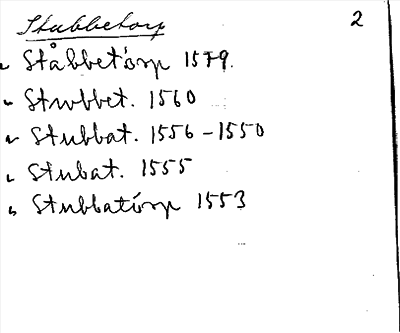 Stubbetorp 2
Ståbbetorp 1579.
Strubbet. 1560
Stubbat. 1556-1550
Stubat. 1555
Stubbatórp 1553